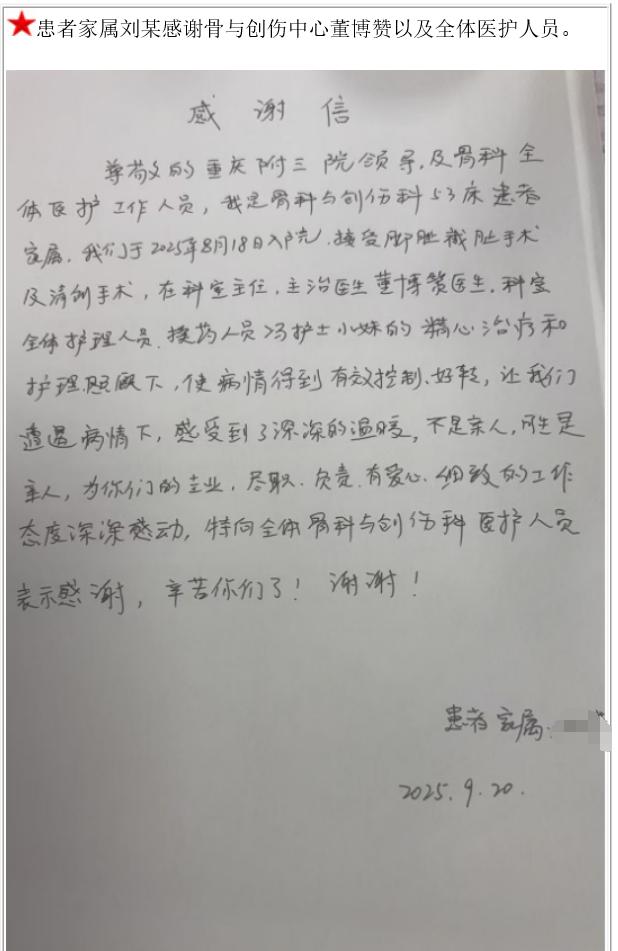 ★患者家属刘某感谢骨与创伤中心董博赞以及全体医护人员。
感谢信
尊敬的重庆附三院领导,及骨科全
体医护工作人员,我是骨科与创伤科53床患者
家属,我们于2025年8月18日入院,接受脚趾截肢手术
及清创手术,在科室主任,主治医生董博赞医生,科室
全体护理人员,换药人员冯护士小妹的精心治疗和
护理照顾下,使病情得到有效控制、好转,让我们
遭遇病情下,感受到了深深的温暖,不是亲人,胜是
亲人,为你们的专业,尽职、负责、有爱心、细致的工作
态度深深感动,特向全体骨科与创伤科医护人员
表示感谢,辛苦你们了!谢谢!
患者家属:
2025.9.20.